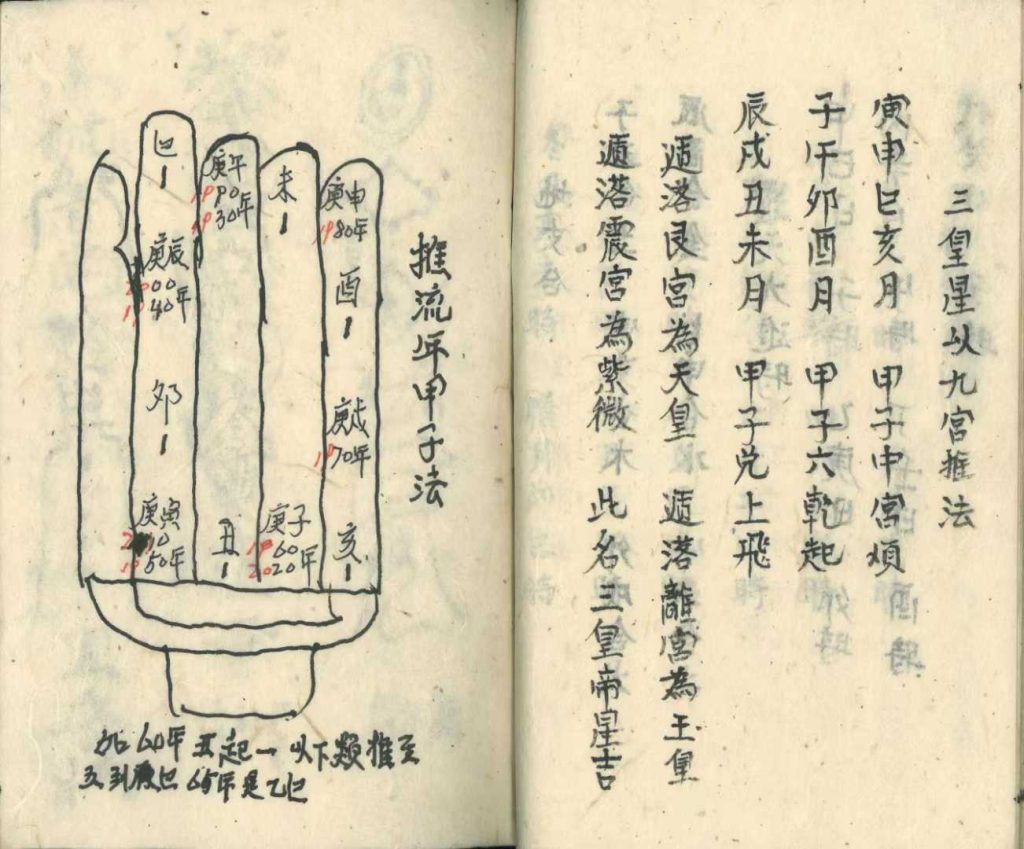 三皇星以九宮推法
寅申巳亥月 甲子中宮煩
子午卯酉月 甲子六乾起
辰戌丑未月 甲子兌上飛
遞落艮宮為天皇 遞落離宮為王皇
遞落震宮為紫微 此名三皇帝星吉
推流年甲子法
庚申
1980年
酉
1
庚戌
1970年
亥
1
未
1
庚子
1960
2020年
庚午
1990
1930年
丑
1
巳
1
庚辰
2000
1940年
卯
1
庚寅
2010
1950年
如60年 丑起一 以下類推至
五到 巳 65年是乙巳